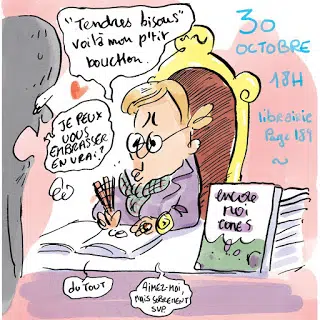 "Tendres bisous"
voilà mon p'tit
bouchon.
30
OCTOBRE
18H
librairie
Page 189
~
JE PEUX
VOUS
EMBRASSER
EN VRAI?
encore
moi
connes
du TOUT
AIMEZ-MOI,
MAIS SOBREMENT
SVP.